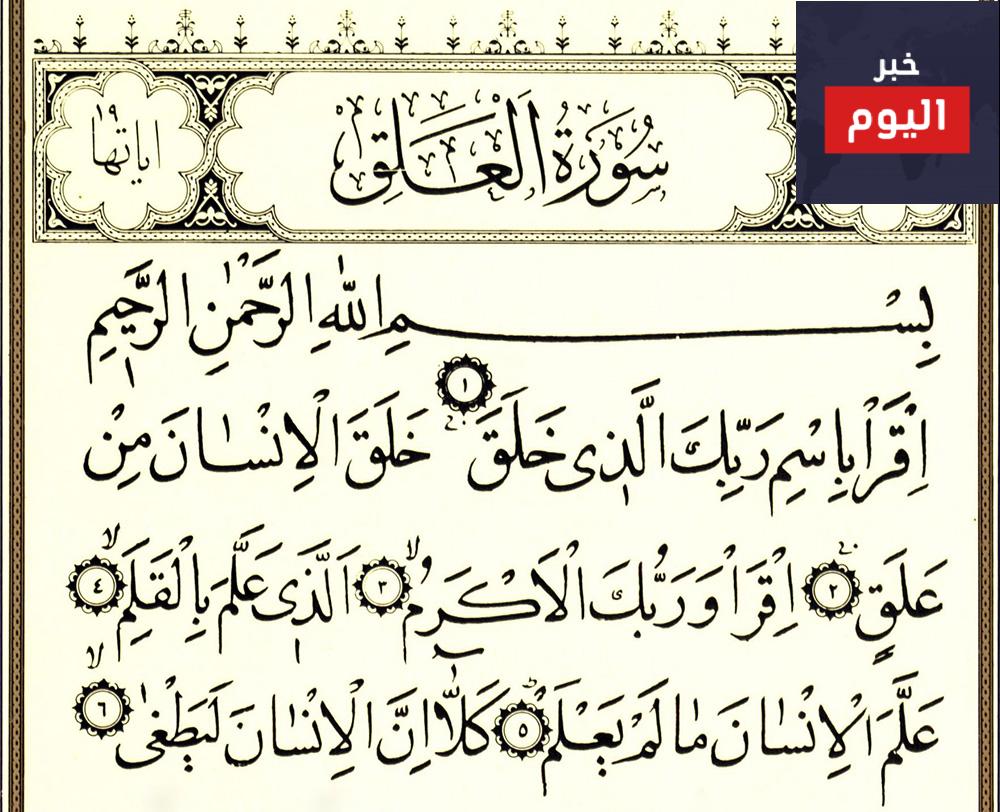 خبر
اليوم
سُورَةُ الْعَلَقِ
اياتها ١٩
بِسْمِ اللّٰهِ الرَّحْمٰنِ الرَّحِيمِ
اِقْرَأْ بِاسْمِ رَبِّكَ الَّذِى خَلَقَ ۚ ١ خَلَقَ الْاِنْسَانَ مِنْ
عَلَقٍ ۚ ٢ اِقْرَأْ وَرَبُّكَ الْاَكْرَمُ ۙ ٣ اَلَّذِى عَلَّمَ بِالْقَلَمِ ۙ ٤
عَلَّمَ الْاِنْسَانَ مَا لَمْ يَعْلَمْ ۜ ٥ كَلَّا اِنَّ الْاِنْسَانَ لَيَطْغٰى ۙ ٦